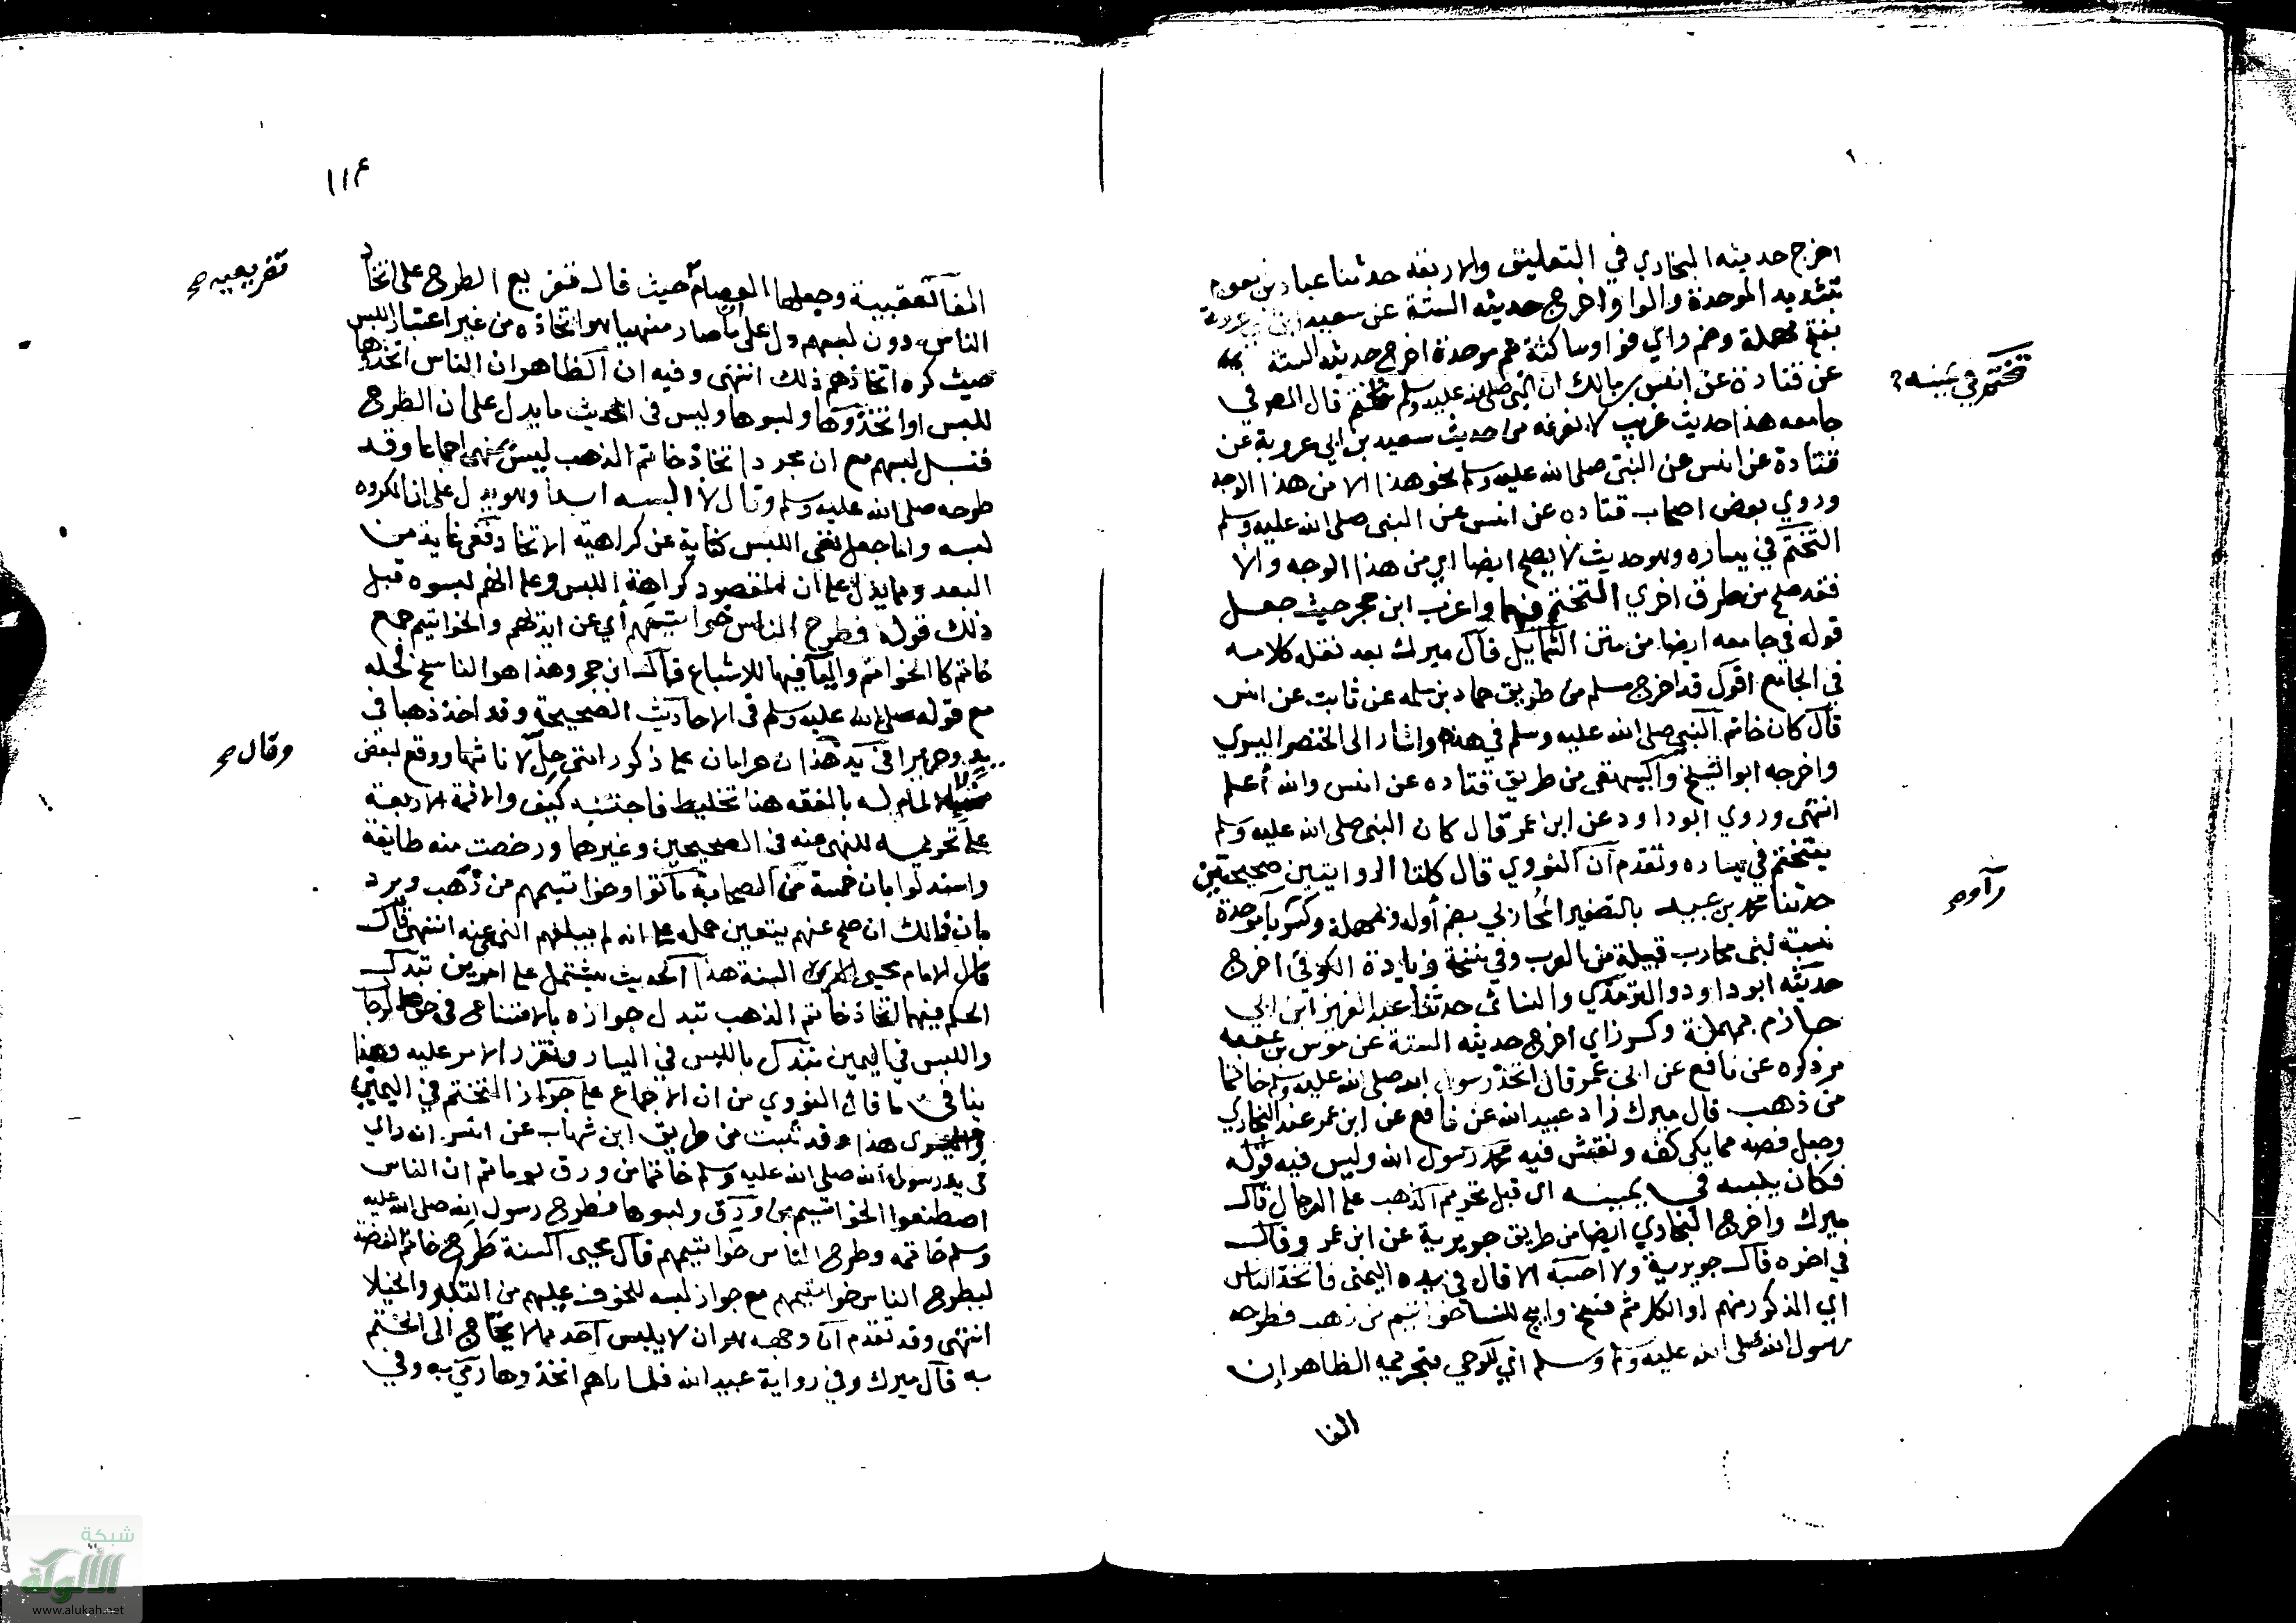 اخرج حديثه البخاري في التعليق والاربعة حدثنا عباد بن عوام
بتشديد الموحدة والواو اخرج حديثه الستة عن سعيد ابن ابي عروبة
بفتح مهملة وضم راي فواو ساكنة ثم موحدة اخرج حديثه الستة
عن قتادة عن انس بن مالك ان النبي صلى الله عليه وسلم تختم قال المص في
تختم في يمينه
جامعه هذا حديث غريب لا نعرفه من حديث سعيد بن ابي عروبة عن
قتادة عن انس عن النبي صلى الله عليه وسلم نحو هذا الا من هذا الوجه
وروي بعض اصحاب قتاده عن انس عن النبي صلى الله عليه وسلم
التختم في يساره وهو حديث لا يصح ايضا اي من هذا الوجه والا
فقد صح من طرق اخري التختم فيهما واغرب ابن حجر حيث جعل
قوله في جامعه ايضا من متن الشمايل قال ميرك بعد نقله كلامه
في الجامع اقول قد اخرج مسلم من طريق حماد بن سلمه عن ثابت عن انس
قال كان خاتم النبي صلى الله عليه وسلم في هذه واشار الى الخنصر اليسري
واخرجه ابو الشيخ والبيهقي من طريق قتاده عن انس والله أعلم
انتهى وروي ابو داود عن ابن عمر قال كان النبي صلى الله عليه وسلم
يتختم في يساره وتقدم ان النووي قال كلتا الروايتين صحيحتين
حدثنا محمد بن عبيد بالتصغير المُحاربي بضم أوله ومهملة وكسر راء وموحدة
نسبة لبني محارب قبيلة من العرب وفي نسخة زيادة الكوفي اخرج
حديثه ابو داود والترمذي والنسائي حدثنا عبد العزيز ابن ابي
حازم بمهملة وكسر زاي اخرج حديثه الستة عن موسى بن عقبه
مر ذكره عن نافع عن ابن عمر قال اتخذ رسول الله صلى الله عليه وسلم خاتما
من ذهب قال ميرك زاد عبيد الله عن نافع عن ابن عمر عند البخاري
وجعل فصه مما يلي كفه ونقش فيه محمد رسول الله وليس فيه قوله
فكان يلبسه في يمينه اي قبل تحريم الذهب على الرجال قال
ميرك واخرج البخاري ايضا من طريق جويرية عن ابن عمر وقال
في اخره قال جويرية ولا احسبه الا قال في يده اليمنى فاتخذ الناس
اي المذكور منهم او الكل ثم فسخ وابيح للنسا خواتيم من ذهب فطرحه
رسول الله صلى الله عليه وسلم اي للوحي بتحريمه الظاهر ان
الفا
١١٤
الفا تعقيبية وجعلها العصام حيث قال فتفريع الطرح على اتخاذ
تفريعيه صح
الناس دون لبسهم دل على ما صار منهيا هو اتخاذه من غير اعتبار اللبس
حيث كره اتخاذهم ذلك انتهى وفيه ان الظاهر ان الناس اتخذوها
للبس او اتخذوها ولبسوها وليس في الحديث ما يدل على ان الطرح
قبل لبسهم مع ان مجرد اتخاذ خاتم الذهب ليس بمنهي اجماعا وقد
طرحه صلى الله عليه وسلم وقال لا البسه ابدا وهو يدل على ان المكروه
لبسه واما جعل نفي اللبس كناية عن كراهية الاتخاذ ففي غاية من
البعد ومما يدل على ان المقصود كراهة اللبس وعلى انهم لبسوه قبل
ذلك قوله فطرح الناس خواتيمهم أي عن ايديهم والخواتيم جمع
خاتم كالخواتم واليا فيها للاشباع قال ابن حجر وهذا هو الناسخ لحله
مع قوله صلى الله عليه وسلم في الاحاديث الصحيحة وقد اخذ ذهبا في
يد وحريرا في يد هذان حرامان على ذكور امتي حل لاناثها ووقع لبعض
وقال صح
من لا المام له بالفقه هنا تخليط فاجتنبه كيف والائمة الاربعة
على تحريمه للنهي عنه في الصحيحين وغيرهما ورخصت منه طايفة
واستدلوا بان خمسة من الصحابة ماتوا وخواتيمهم من ذهب ويرد
رآوه صح
بان ذلك ان صح عنهم يتعين حمله على انه لم يبلغهم النهي عنه انتهى قال
قال الامام محيي السنة هذا الحديث يشتمل على امرين تبدل
الحكم فيهما اتخاذ خاتم الذهب تبدل جوازه بالامتناع في حق الرجال
واللبس في اليمين تبدل باللبس في اليسار وتقرر الامر عليه وهذا
ينافي ما قال النووي من ان الاجماع على جواز التختم في اليمين
واليسرى هذا وقد ثبت من طريق ابن شهاب عن انس انه راي
في يد رسول الله صلى الله عليه وسلم خاتما من ورق يوما ثم ان الناس
اصطنعوا الخواتيم من ورق ولبسوها فطرح رسول الله صلى الله عليه
وسلم خاتمه وطرح الناس خواتيمهم قال محيي السنة طرح خاتم الفضة
ليطرح الناس خواتيمهم مع جواز لبسه للخوف عليهم من التكبر والخيلا
انتهى وقد تقدم ان وجهه هو ان لا يلبس احد مما لا يحتاج الى الختم
به قال ميرك وفي رواية عبيد الله فلما راهم اتخذوها رمى به وفي
شبكة
الألوكة
www.alukah.net